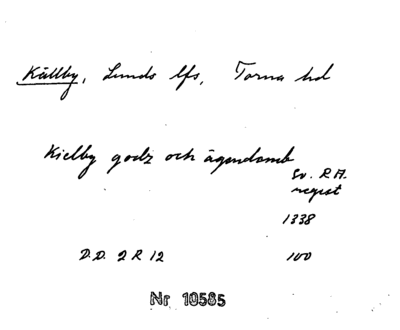 Källby, Lunds lfs, Torna hd
Kielby godz och ägendomb
Sv. R.A.
regest
1338
D.D. 2 R 12 100
Nr 10585